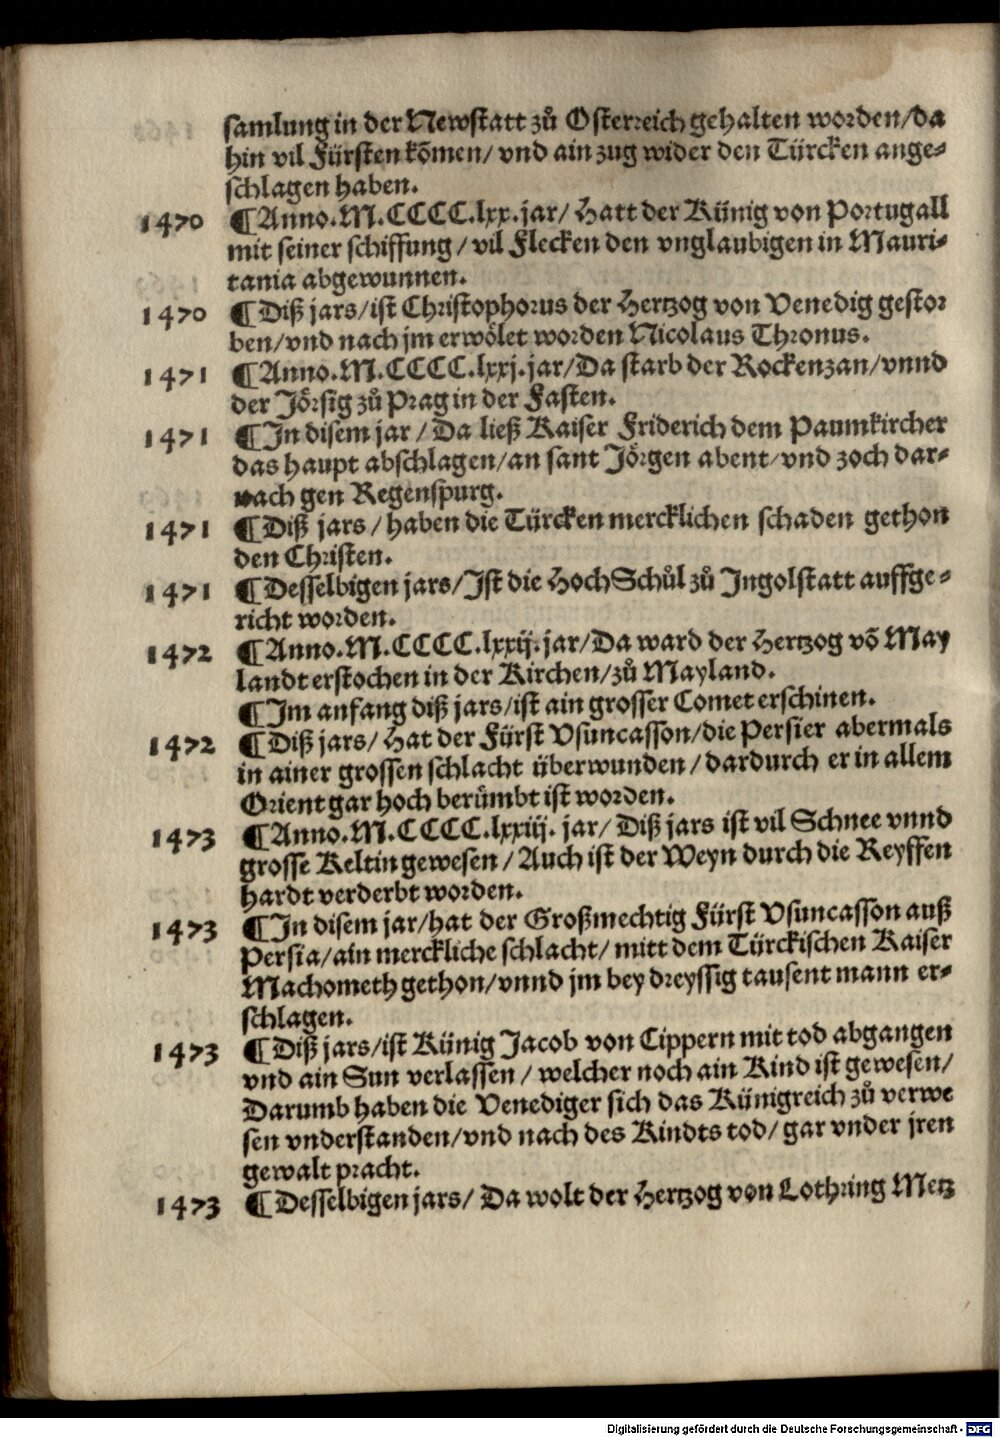 samlung in der Newstatt zů Osterreich gehalten worden/da
hin vil Fürsten kõmen/ vnd ain zug wider den Türcken ange-
schlagen haben.
1470 ¶ Anno. M. CCCC. lxx. jar/ Hatt der Künig von Portugall
mit seiner schiffung / vil Flecken den vnglaubigen in Mauri-
tania abgewunnen.
1470 ¶ Diß jars/ist Christophorus der Hertzog von Venedig gestor
ben/vnd nach jm erwölet worden Nicolaus Thronus.
1471 ¶ Anno. M. CCCC. lxxj. jar/Da starb der Rockenzan/vnnd
der Jörsig zů Prag in der Fasten.
1471 ¶ In disem jar / Da ließ Kaiser Friderich dem Paumkircher
das haupt abschlagen/an sant Jörgen abent/vnd zoch dar-
nach gen Regenspurg.
1471 ¶ Diß jars / haben die Türcken mercklichen schaden gethon
den Christen.
1471 ¶ Desselbigen jars/Ist die HochSchůl zů Ingolstatt auffge-
richt worden.
1472 ¶ Anno. M. CCCC. lxxij. jar/Da ward der Hertzog võ May
landt erstochen in der Kirchen/zů Mayland.
¶ Im anfang diß jars/ist ain grosser Comet erschinen.
1472 ¶ Diß jars/ Hat der Fürst Vsuncasson/die Persier abermals
in ainer grossen schlacht überwunden / dardurch er in allem
Orient gar hoch berümbt ist worden.
1473 ¶ Anno. M. CCCC. lxxiij. jar/ Diß jars ist vil Schnee vnnd
grosse Keltin gewesen / Auch ist der Weyn durch die Reyffen
hardt verderbt worden.
1473 ¶ In disem jar/hat der Großmechtig Fürst Vsuncasson auß
Persia/ain merckliche schlacht/ mitt dem Türckischen Kaiser
Machometh gethon/vnnd jm bey dreyssig tausent mann er-
schlagen.
1473 ¶ Diß jars/ist Künig Jacob von Cippern mit tod abgangen
vnd ain Sun verlassen / welcher noch ain Kind ist gewesen/
Darumb haben die Venediger sich das Künigreich zů verwe
sen vnderstanden/vnd nach des Kindts tod/ gar vnder jren
gewalt pracht.
1473 ¶ Desselbigen jars/ Da wolt der Hertzog von Lothring Metz
Digitalisierung gefördert durch die Deutsche Forschungsgemeinschaft - DFG